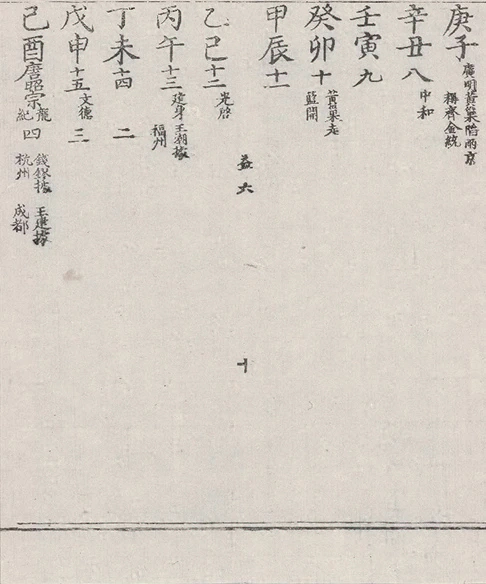 庚子 廣明黃巢陷兩京
稱齊金統
辛丑八 中和
壬寅九
癸卯十 黃巢走
藍開
甲辰十一
益六 十
乙巳十二 光啓
丙午十三 建身王潮據
福州
丁未十四 二
戊申十五 文德 三
己酉唐昭宗 龍紀 四 錢鏐據杭州 王建據成都